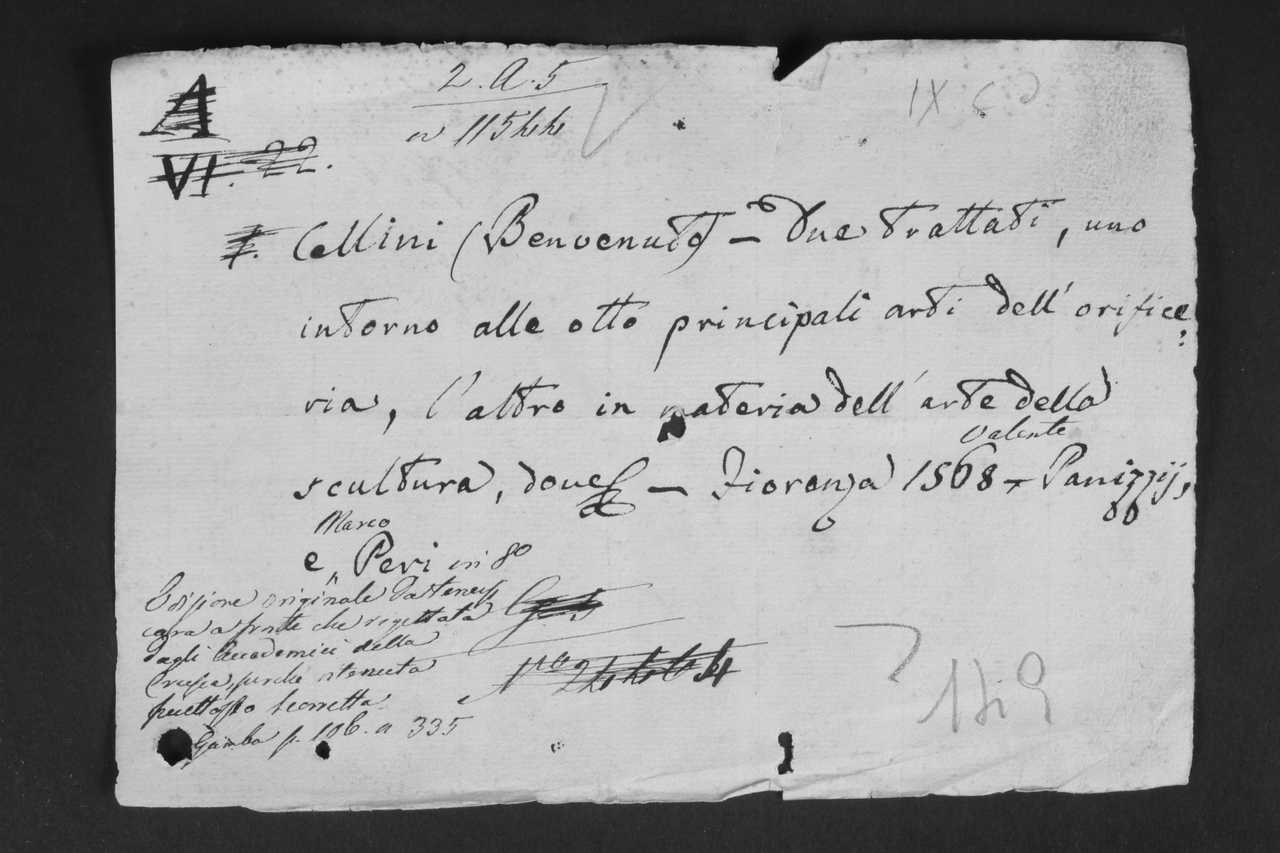 A
VI. 22.
2. A. 5
n 11544
IX
f. Cellini (Benvenuto) – Due trattati, uno
intorno alle otto principali arti dell' orifice:
ria, l'altro in materia dell' arte della
scultura, doue – Fiorenza 1568 – Valente Panizzij,
e, Marco Peri in 8º
Edizione originale da tenersi
cara a fronte che rigettata
dagli Accademici della
Crusca, perché ritenuta
piuttosto scorretta.
Gamba p. 106. n 335